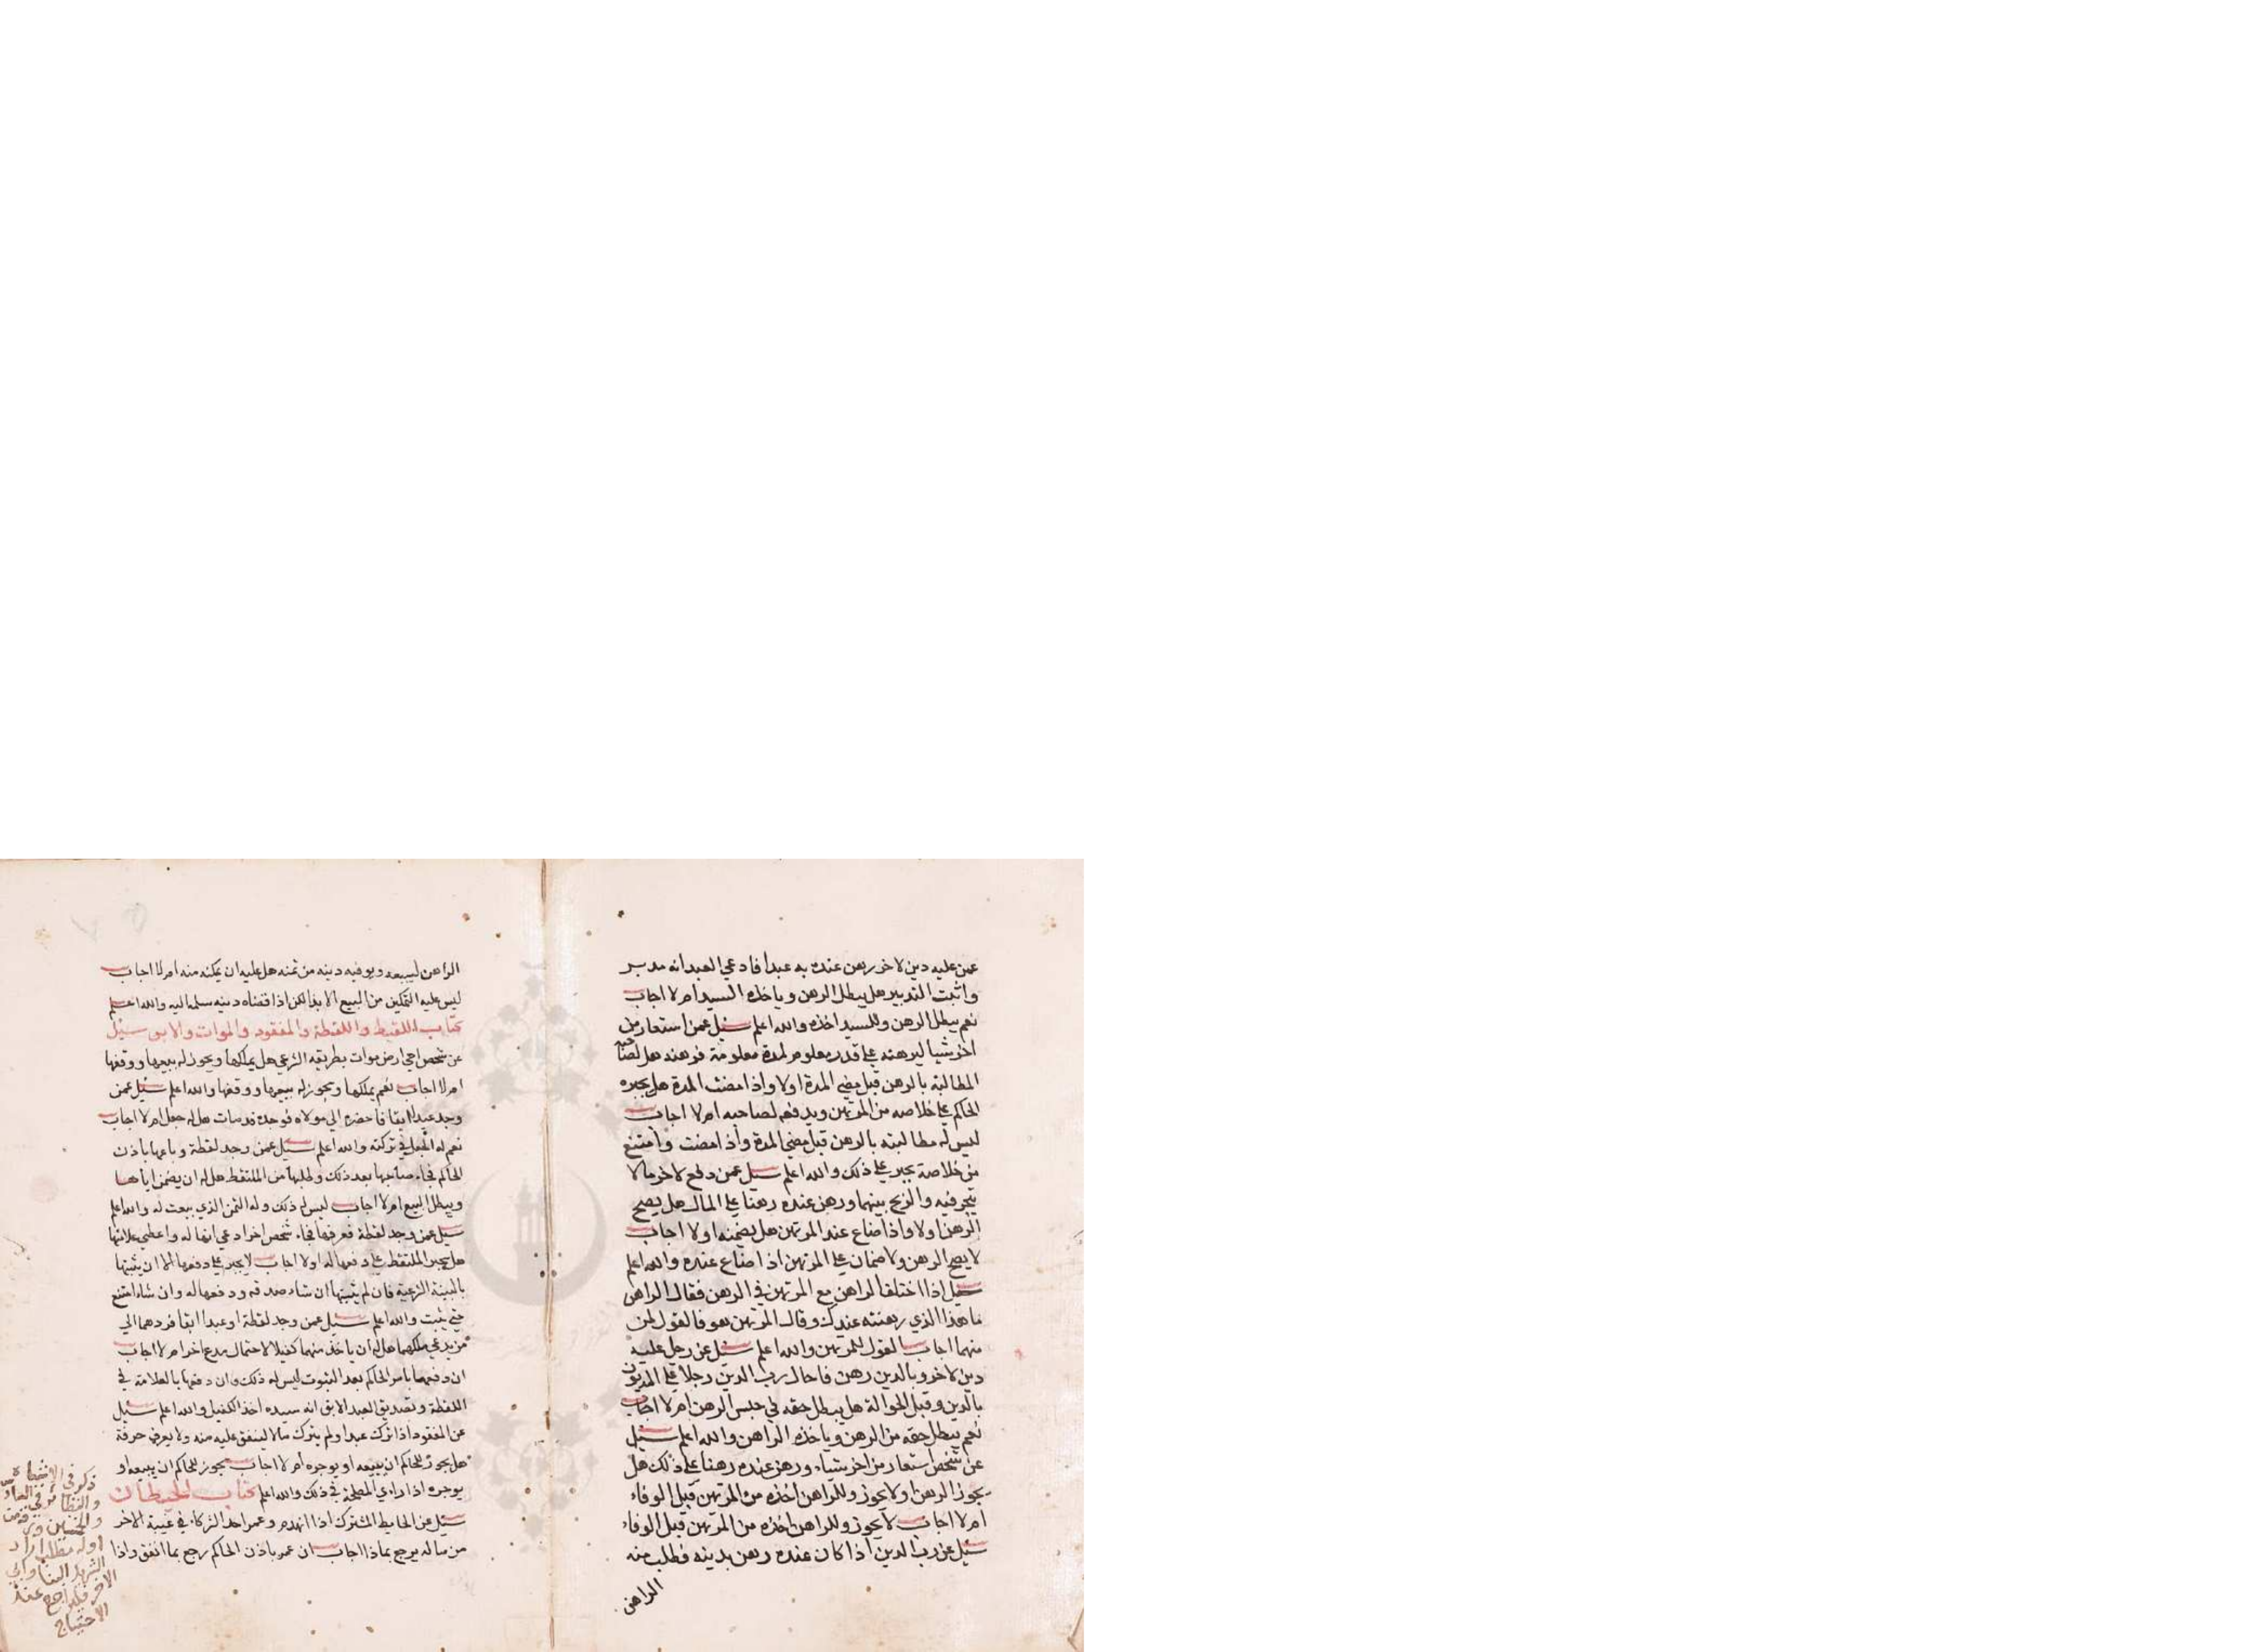 عمن عليه دين لاخر رهن عنده به عبدا فادعي العبد انه مدبر
واثبت التدبير هل يبطل الرهن وياخذه السيد ام لا اجاب
نعم يبطل الرهن وللسيد اخذه والله اعلم سئل عمن استعار من
اخر شيا ليرهنه علي قدر معلوم لمدة معلومة فرهنه هل لصاحبه
المطالبة بالرهن قبل مضي المدة اولا واذا مضت المدة هل يجبره
الحاكم علي خلاصه من المرتهن ويدفعه لصاحبه ام لا اجاب
ليس له مطالبته بالرهن قبل مضي المدة واذا مضت وامتنع
من خلاصه يجبر علي ذلك والله اعلم سئل عمن دفع لاخر مالا
يتجر فيه والربح بينهما ورهن عنده رهنا علي المال هل يصح
الرهن اولا واذا ضاع عند المرتهن هل يضمنه اولا اجاب
لا يصح الرهن ولا ضمان علي المرتهن اذا ضاع عنده والله اعلم
سئل اذا اختلفا الراهن مع المرتهن في الرهن فقال الراهن
ما هذا الذي رهنته عندك وقال المرتهن هو فالقول لمن
منهما اجاب القول للمرتهن والله اعلم سئل عن رجل عليه
دين لاخر وبالدين رهن فاحال رب الدين رجلا علي المديون
بالدين وقبل الحوالة هل يبطل حقه في حبس الرهن ام لا اجاب
نعم يبطل حقه من الرهن وياخذه الراهن والله اعلم سئل
عن شخص استعار من اخر شياء ورهن عنده رهنا علي ذلك هل
يجوز الرهن اولا يجوز وللراهن اخذه من المرتهن قبل الوفاء
ام لا اجاب لا يجوز وللراهن اخذه من المرتهن قبل الوفاء
سئل عن رب الدين اذا كان عنده رهن بدينه فطلب منه
الراهن
الراهن ليبيعه ويوفيه دينه من ثمنه هل عليه ان يمكنه منه ام لا اجاب
ليس عليه التمكين من البيع الا بدا لكن اذا قضاه دينه سلمه اليه والله اعلم
كتاب اللقيط واللقطة والمفقود والموات والابق سئل
عن شخص احي ارض موات بطريقه الشرعي هل يملكها ويجوز له بيعها ووقفها
ام لا اجاب نعم يملكها ويجوز له بيعها ووقفها والله اعلم سئل عمن
وجد عبدا ابقا فاحضره الي مولاه فوجده قد مات هل له جعل ام لا اجاب
نعم له الجعل في تركته والله اعلم سئل عمن وجد لقطة وباعها باذن
الحاكم فجاء صاحبها بعد ذلك وطلبها من الملتقط هل له ان يضمن اياها
ويبطل البيع ام لا اجاب ليس له ذلك وله الثمن الذي بيعت له والله اعلم
سئل عمن وجد لقطة فعرفها فجاء شخص اخر ادعي انها له واعطي علامتها
هل يجبر الملتقط علي دفعها له اولا اجاب لا يجبر علي دفعها الا ان يثبتها
بالبينة الشرعية فان لم يثبتها ان شاء صدقه ودفعها له وان شاء امتنع
حتي يثبت والله اعلم سئل عمن وجد لقطة او عبدا ابقا فردهما الي
من يدعي ملكهما هل له ان ياخذ منهما كفيلا لاحتمال مدع اخر ام لا اجاب
ان دفعها بامر الحاكم بعد الثبوت ليس له ذلك وان دفعها بالعلامة في
اللقطة وتصديق العبد الابق انه سيده اخذ الكفيل والله اعلم سئل
عن المفقود اذا ترك عبدا ولم يترك مالا لينفق عليه منه ولا يعرف حرفة
هل يجوز للحاكم ان يبيعه او يوجره ام لا اجاب يجوز للحاكم ان يبيعه او
يوجره اذا راي المصلحة في ذلك والله اعلم كتاب الحيطان
سئل عن الحايط المشترك اذا انهدم وعمر احد الشركاء في غيبة الاخر
من ماله يرجع بماذا اجاب ان عمر باذن الحاكم رجع بما انفق واذا
ذكر في
الشريك البنا وابي
الاخر فليراجع عند
الاحتياج